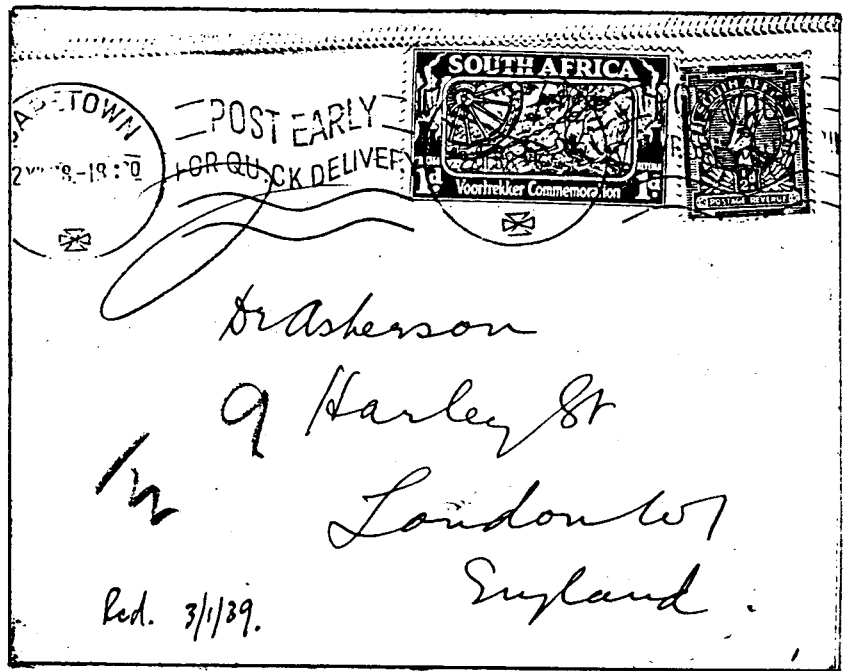 CAPETOWN
POST EARLY
FOR QUICK DELIVERY
SOUTH AFRICA
1d Voortrekker Commemoration 1d.
SOUTH AFRICA
POSTAGE REVENUE
Dr Asherson
9 Harley St
London W1
England.
Rcd. 3/1/39.